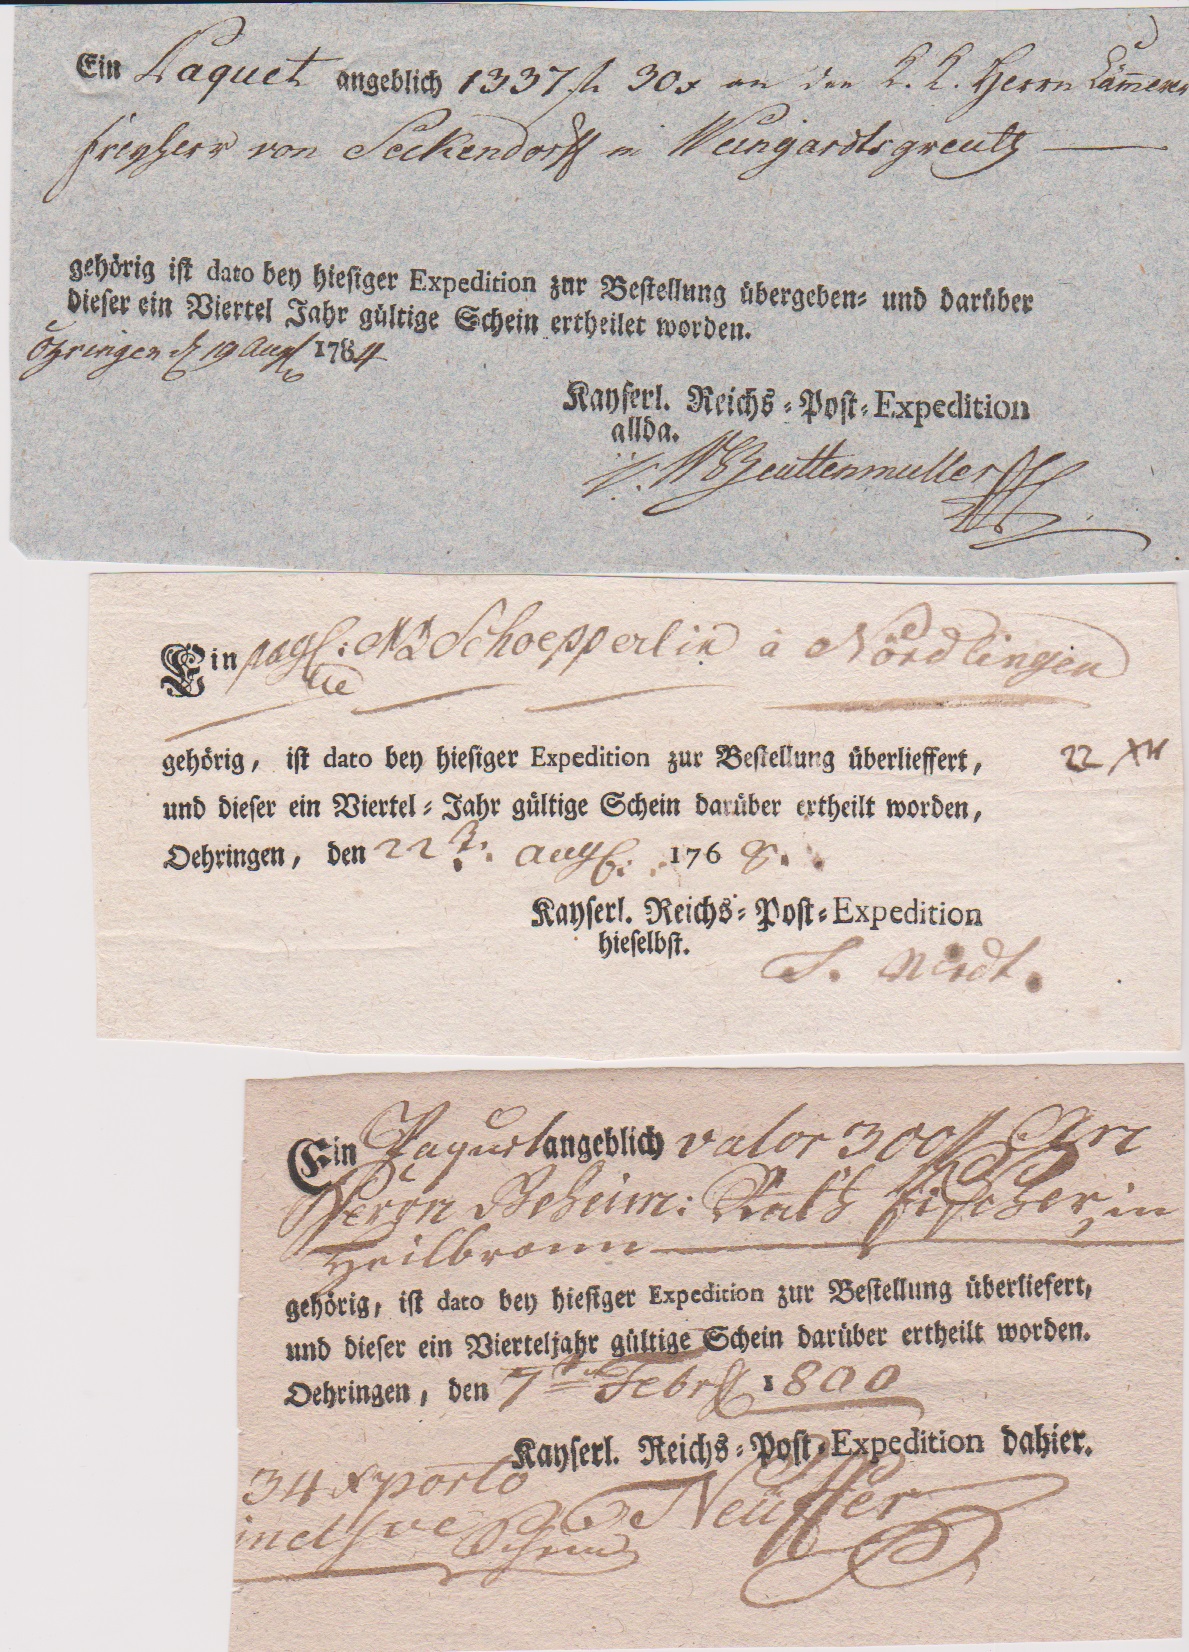 Ein Paquet angeblich 1337 fl 30 x an den K. K. Herrn Cämmerer
Freyherr von Seckendorff in Weingardtsgreuth
gehörig ist dato bey hiesiger Expedition zur Bestellung übergeben- und darüber
dieser ein Viertel Jahr gültige Schein ertheilet worden.
Öhringen d 19 Aug 1784
Kayserl. Reichs-Post-Expedition
allda.
W Beuttenmuller
Ein Schoepperlin à Nördlingen
gehörig, ist dato bey hiesiger Expedition zur Bestellung überlieffert,
22 xr
und dieser ein Viertel-Jahr gültige Schein darüber ertheilt worden,
Oehringen, den 22 Aug. 1768.
Kayserl. Reichs-Post-Expedition
hieselbst.
Ein Paquet angeblich valor 300 fl
Herrn Geheim: Rath Fischer in
Heilbronn
gehörig, ist dato bey hiesiger Expedition zur Bestellung überliefert,
und dieser ein Vierteljahr gültige Schein darüber ertheilt worden.
Oehringen, den 7 Febr 1800
Kayserl. Reichs-Post-Expedition dahier.
34 x porto
Neüffer
inclusive Schein